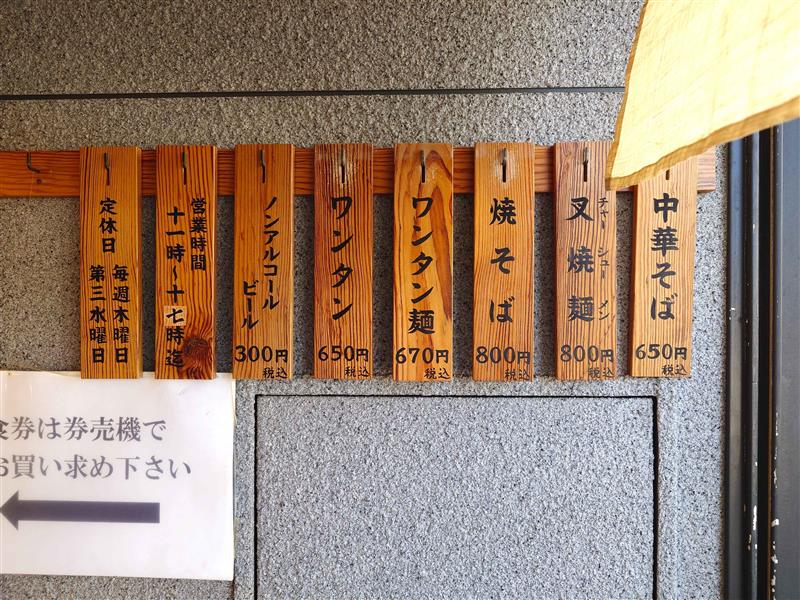 中華そば
650円
税込
叉焼麺
チャーシューメン
800円
税込
焼そば
800円
税込
ワンタン麺
670円
税込
ワンタン
650円
税込
ノンアルコール
ビール
300円
税込
営業時間
十一時〜十七時迄
定休日
毎週木曜日
第三水曜日
食券は券売機で
お買い求め下さい